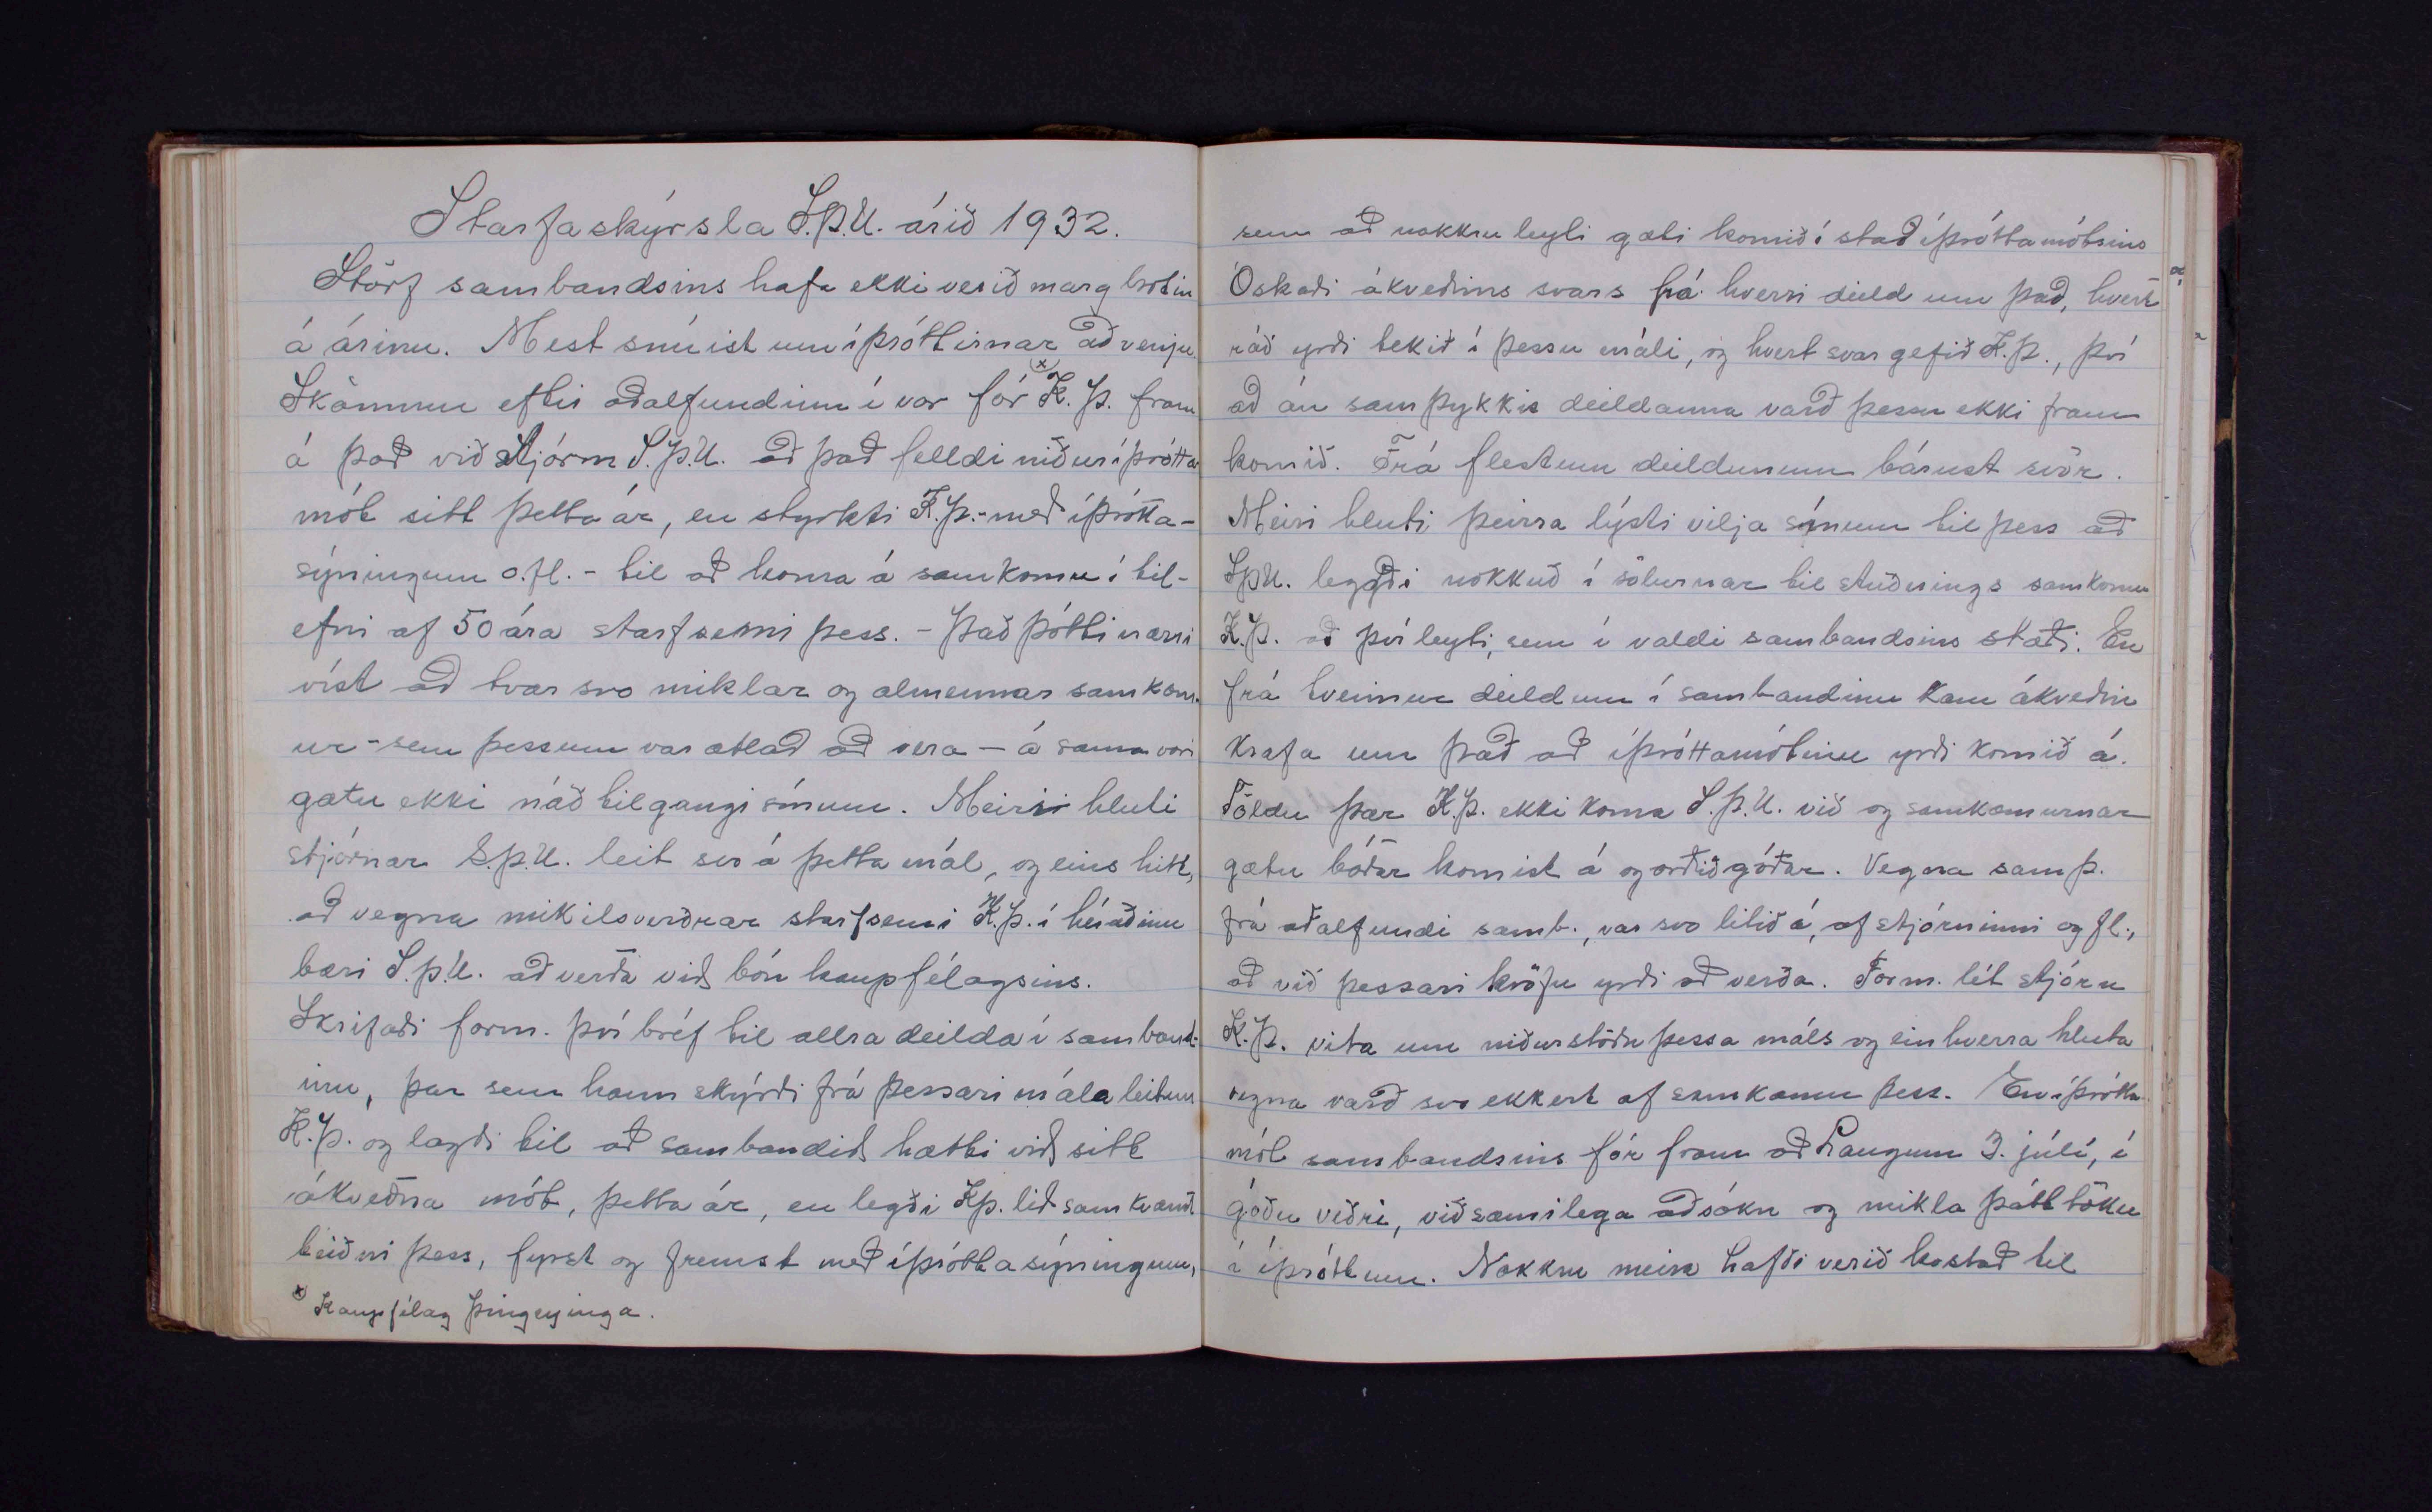 Starfaskýrsla S.þ.U. árið 1932.
Störf sambandsins hafa ekki verið margbrotin
á árinu. Mest snúist um íþróttirnar að venju.
Skömmu eftir aðalfundinn í vor fór ˣ K.Þ. fram
á það við stjórn S.þ.U. að það felldi niður íþrótta
mót sitt þetta ár, en styrkti K.Þ. - með íþrótta-
sýningum o.fl. - til að koma á samkomu í til-
efni af 50 ára starfsemi þess. - Það þótti nærri
víst að tvær svo miklar og almennar samkom-
ur - sem þessum var ætlað að vera - á sama vori
gætu ekki náð tilgangi sínum. Meiri hluti
stjórnar S.þ.U. leit svo á þetta mál, og eins hitt,
að vegna mikilsverðrar starfsemi K.Þ. í héraðinu
bæri S.þ.U. að verða við bón kaupfélagsins.
Skrifaði form. því bréf til allra deilda í samband-
inu, þar sem hann skýrði frá þessari málaleitun
K.Þ. og lagði til að sambandið hætti við sitt
ákveðna mót, þetta ár, en legði Kþ. lið samkvæmt
beiðni þess, fyrst og fremst með íþróttasýningum,
ˣ Kaupfélag Þingeyinga.
sem að nokkru leyti gæti komið í stað íþróttamótsins
Óskaði ákveðins svars frá hverri deild um það, hvert
ráð yrði tekið í þessu máli, og hvert svar gefið K.Þ., því
að án samþykkis deildanna varð þessu ekki fram
komið. Frá flestum deildunum bárust svör.
Meiri hluti þeirra lýsti vilja sínum til þess að
SþU. leggði nokkuð í sölurnar til stuðnings samkomu
K.Þ. að því leyti, sem í valdi sambandsins stæði. En
frá tveimur deildum í sambandinu kom ákveðin
krafa um það að íþróttamótinu yrði komið á.
Töldu þær K.Þ. ekki koma S.þ.U. við og samkomurnar
gætu báðar komist á og orðið góðar. Vegna samþ.
frá aðalfundi samb., var svo litið á, af stjórninni og fl.,
að við þessari kröfu yrði að verða. Form. lét stjórn
K.Þ. vita um niðurstöðu þessa máls og einhverra hluta
vegna varð svo ekkert af samkomu þess. En íþrótta-
mót sambandsins fór fram að Laugum 3. júlí, í
góðu veðri, við sæmilega aðsókn og mikla þátttöku
í íþróttum. Nokkru meira hafði verið kostað til